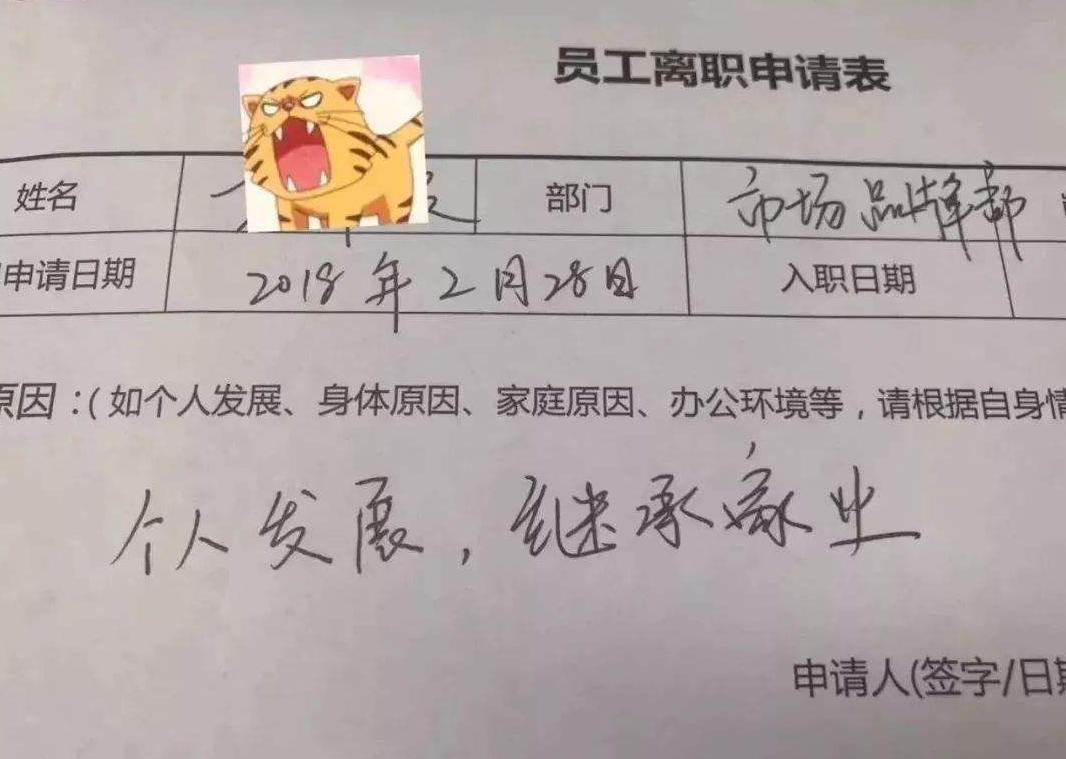 员工离职申请表
姓名 部门 市场品牌部
申请日期 2018年2月28日 入职日期
原因：（如个人发展、身体原因、家庭原因、办公环境等，请根据自身情
个人发展，继承家业
申请人(签字/日期